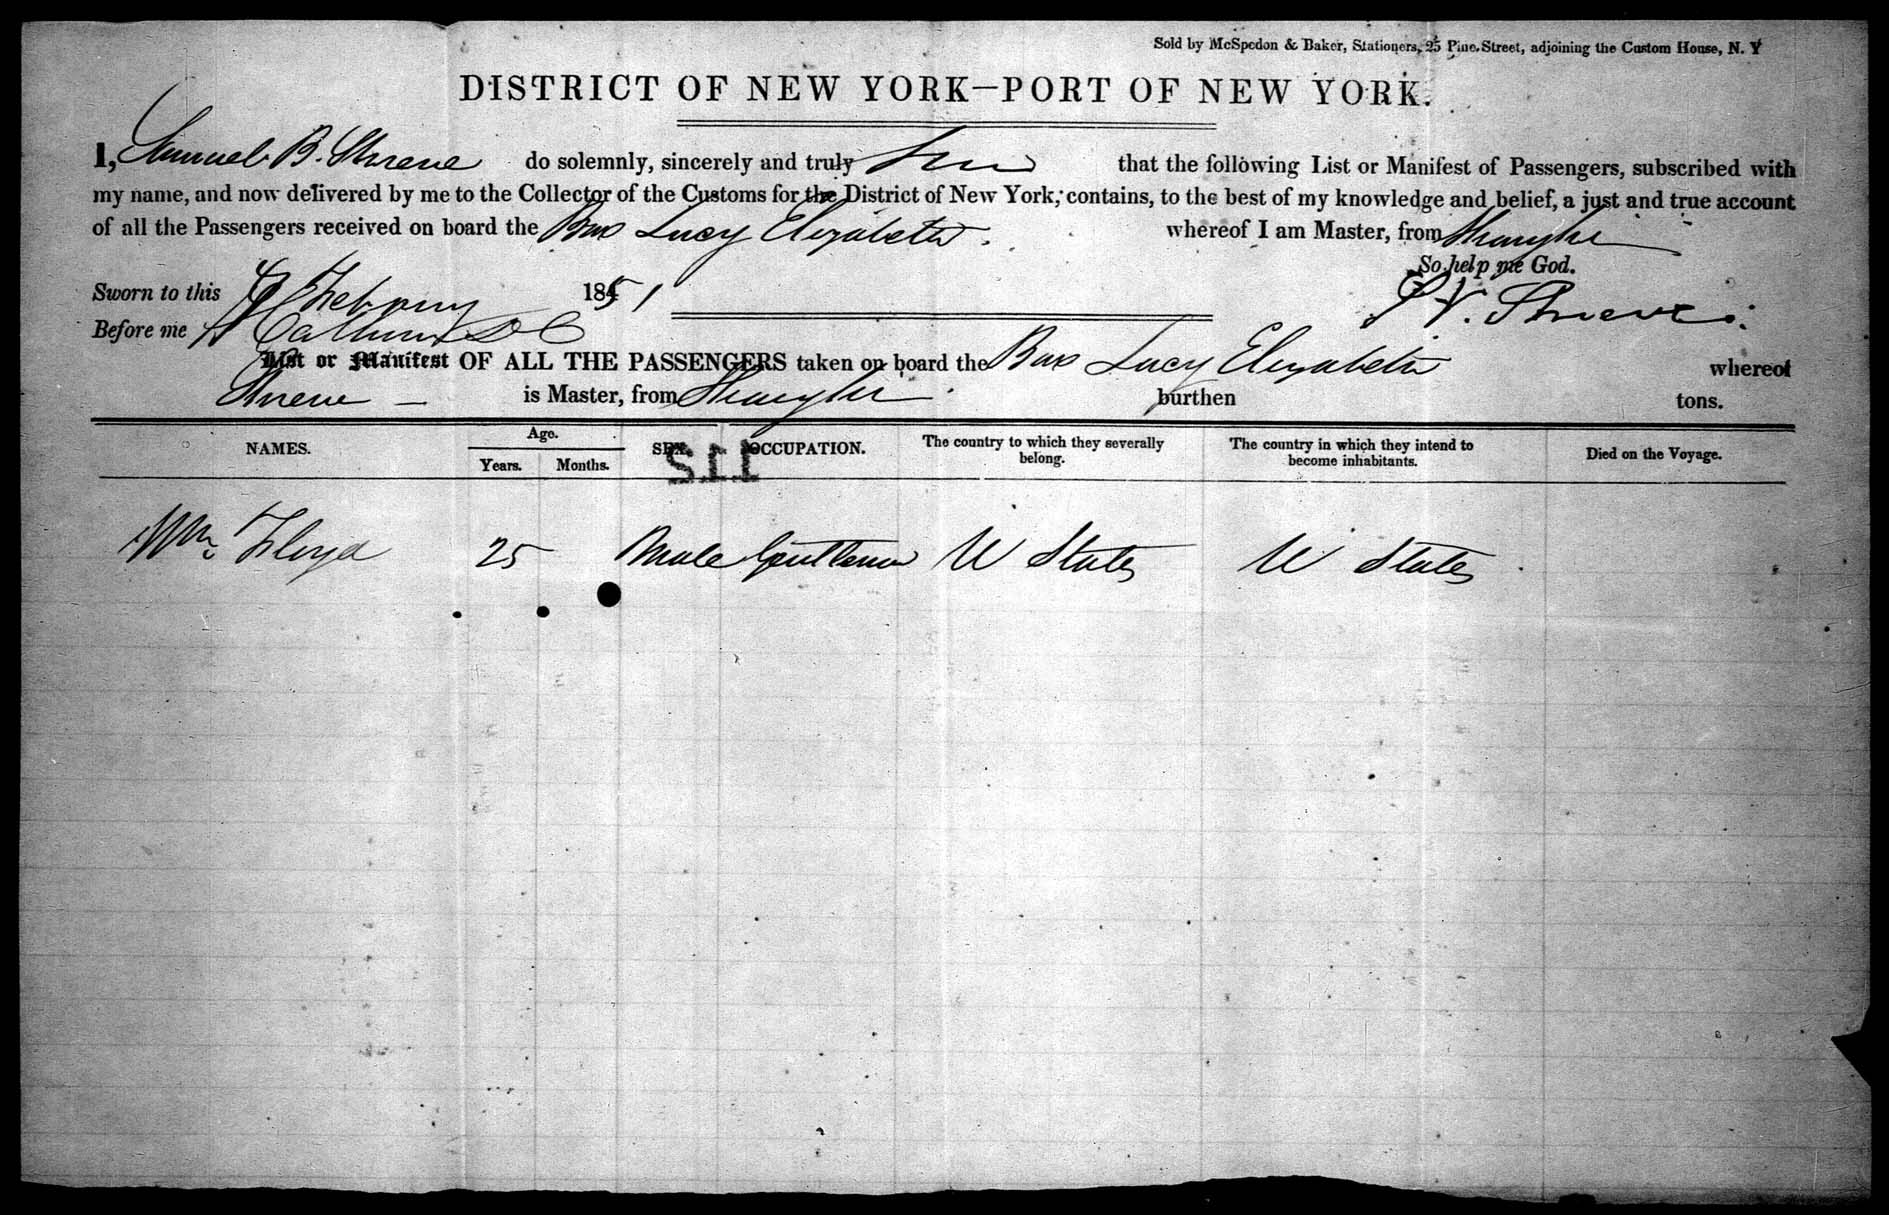 Sold by McSpedon & Baker, Stationers, 25 Pine Street, adjoining the Custom House, N. Y
DISTRICT OF NEW YORK—PORT OF NEW YORK.
I, Samuel B. Shreve do solemnly, sincerely and truly that the following List or Manifest of Passengers, subscribed with
my name, and now delivered by me to the Collector of the Customs for the District of New York, contains, to the best of my knowledge and belief, a just and true account
of all the Passengers received on board the Bark Lucy Elizabeth. whereof I am Master, from Shanghi
So help me God.
Sworn to this 1851
Before me
List or Manifest OF ALL THE PASSENGERS taken on board the Bark Lucy Elizabeth whereof
Shreve — is Master, from Shanghi burthen tons.
NAMES. Age. Years. Months. SEX. OCCUPATION. The country to which they severally belong. The country in which they intend to become inhabitants. Died on the Voyage.
Wm. Floyd 25 Male Gentleman U States U States